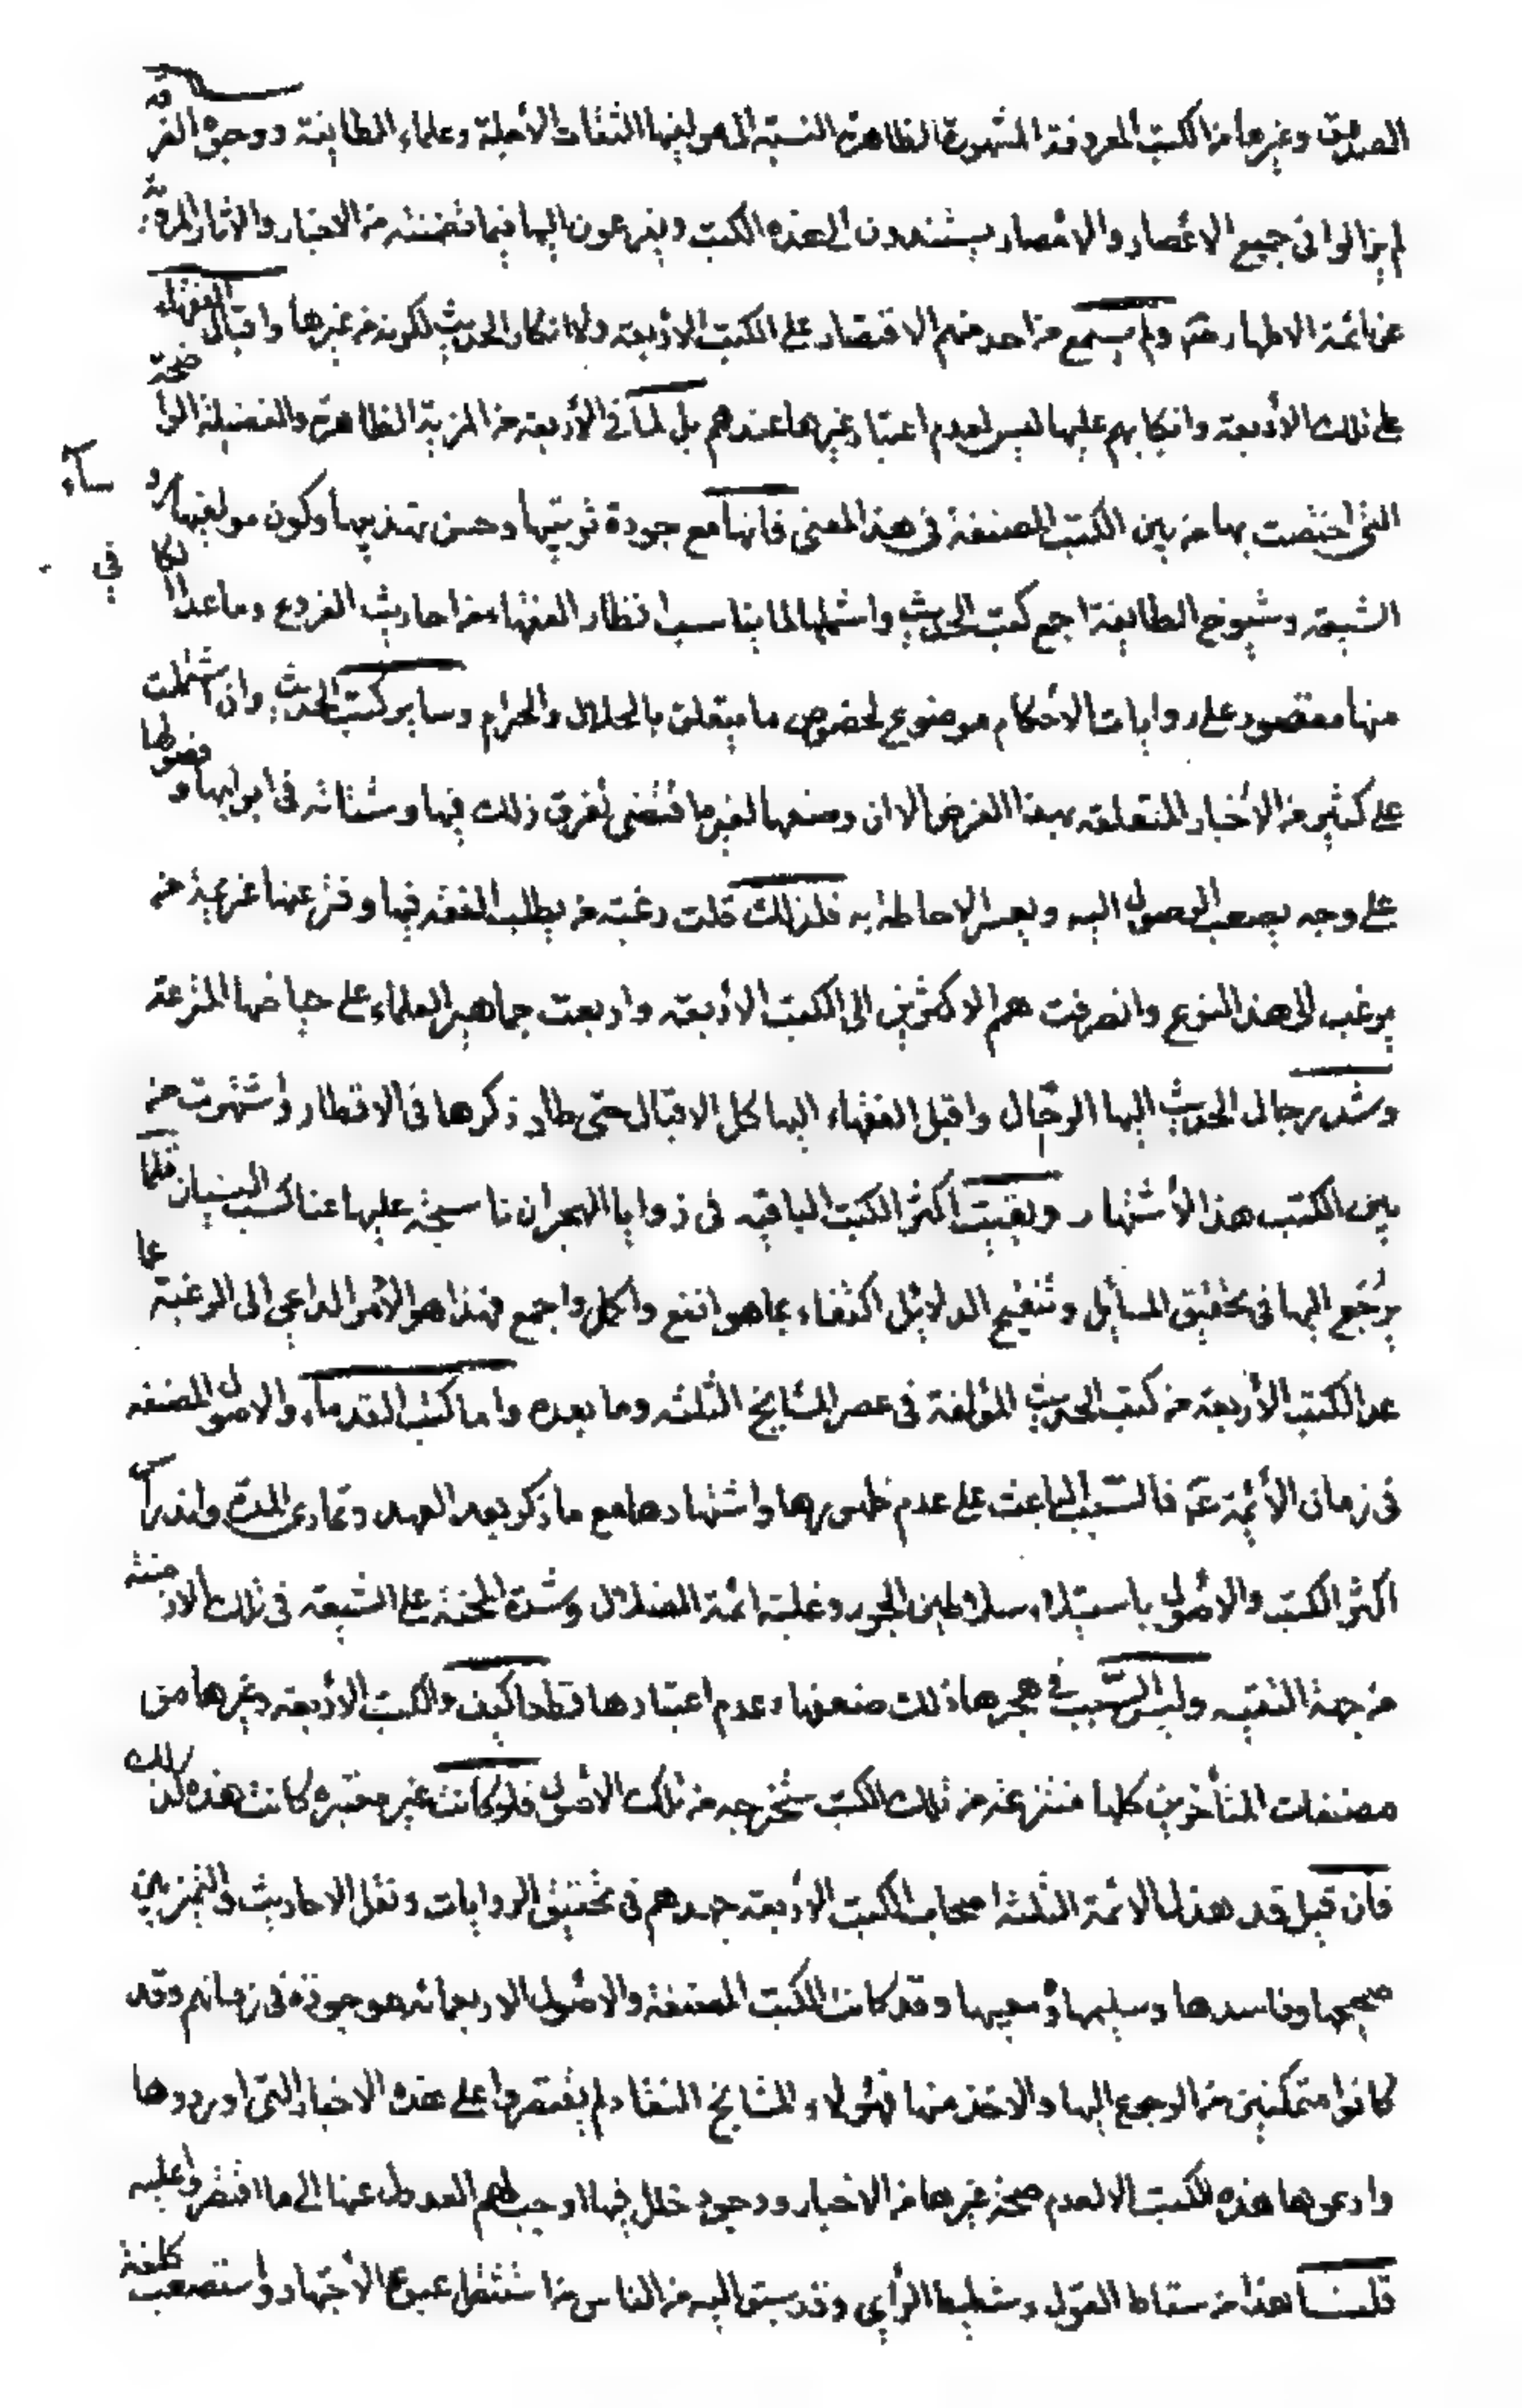 الصدوق وغيرها من الكتب المعروفة المشهورة الظاهرة النسبة الى مولفيها الثقات الأجلة وعلماء الطايفة ووجوه الفرقة
لم يزالوا في جميع الاعصار والامصار يستندون الى هذه الكتب ويفزعون اليها فيما تضمنته من الاخبار والاثار المروية
عن ائمة الاطهار ولم يسمع من احد منهم الاقتصار على الكتب الاربعة ولا انكار الحديث لكونه من غيرها واقبال الفقهاء
على تلك الأربعة وانكبابهم عليها ليس لعدم اعتبار غيرها عندهم بل لما في الأربعة من المزية الظاهرة والفضيلة الواضحة
التي اختصت بها من بين الكتب المصنفة في هذا المعنى فانها مع جودة ترتيبها وحسن تهذيبها وكون مولفيها رؤساء
الشيعة وشيوخ الطايفة اجمع كتب الحديث واشملها لما يناسب انظار الفقهاء من احاديث الفروع وما عدا الكافي
منها مقصور على روايات الأحكام موضوع لخصوص ما يتعلق بالحلال والحرام وساير كتب الحديث وان اشتملت
على كثير من الأخبار المتعلقة بهذا الغرض الا ان وضعها لغيره اقتضى تفرق ذلك فيها وشتاته في ابوابها وفصولها
على وجه يصعب الوصول اليه ويعسر الاحاطة به فلذلك قلت رغبة من يطلب الفقه فيها وفتر عنها عزيمة من
يرغب الى هذا النوع وانصرفت همم الاكثرين الى الكتب الأربعة واربعت جماهير العلماء على حياضها المترعة
وشد رجال الحديث اليها الرحال واقبل الفقهاء اليها كل الاقبال حتى طار ذكرها في الاقطار واشتهرت من
بين الكتب هذا الأشتهار وبقيت اكثر الكتب الباقية في زوايا الهجران ناسجة عليها عناكب النسيان قلما
يرجع اليها في تحقيق المسايل وتنقيح الدلايل اكتفاء بما هو انفع واكمل واجمع فهذا هو الأمر الداعي الى الرغبة عما
عدا الكتب الأربعة من كتب الحديث المؤلفة في عصر المشايخ الثلثة وما بعده واما كتب القدماء والاصول المصنفة
في زمان الأئمة ع فالسبب الباعث على عدم ظهورها واشتهارها مع ما ذكر بعد العهد وتمادي المدة واندراس
اكثر الكتب والاصول باستيلاء سلاطين الجور وغلبة ائمة الضلال وشدة المحنة على الشيعة في تلك الازمنة
من جهة التقية وليس السبب في هجرها ذلك ضعفها وعدم اعتبارها قطعا كيف والكتب الاربعة وغيرها من
مصنفات المتأخرين كلها منتزعة من تلك الكتب مستخرجه من تلك الأصول فلو كانت غير معتبره كانت هذه كذلك
فان قيل قد بذل هذا الائمة الثلثة اصحاب الكتب الأربعة جهدهم في تحقيق الروايات ونقل الاحاديث والتميز بين
صحيحها وفاسدها وسليمها ومعيبها وقد كانت الكتب المصنفة والاصول الاربعمائه موجودة في زمانهم وقد
كانوا متمكنين من الرجوع اليها والاخذ منها فهؤلاء المشايخ النقاد لم يقتصروا على هذه الاخبار التي اوردوها
واودعوها هذه الكتب الا لعدم صحة غيرها من الاخبار ووجود خلل فيها اوجب لهم العدول عنها الى ما اقتصروا عليه
قلنا هذا من سقاط القول وشطيط الرأي وقد سبق اليه من الناس من استثقل عبوء الأجتهاد واستصعب كلفة